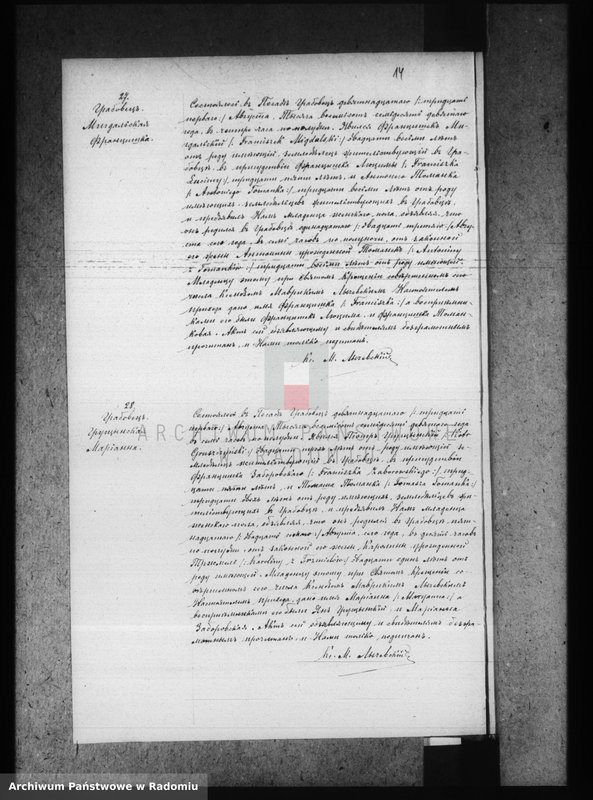 14
27.
Грабовецъ.
Мигдальская
Францишка.
Состоялось въ Посадѣ Грабовецъ девятнадцатаго /: тридцать
перваго :/ Августа, Тысяча восемьсотъ семьдесятъ девятаго
года, въ четыре часа по полудни. Явился Францишекъ Ми-
гдальскій /: Franciszek Migdalski :/ двадцати восьми лѣтъ
отъ роду имѣющій, земледѣлецъ жительствующій въ Гра-
бовцѣ, въ присутствіи Францишка /: Franciszka
:/ тридцати пяти лѣтъ, и Антонего Томанка
/: Antoniego Tomanka :/ тридцати восьми лѣтъ отъ роду
имѣющихъ, земледѣльцевъ жительствующихъ въ Грабовцѣ,
и предъявилъ Намъ Младенца женскаго пола, объявляя, что
онъ родился въ Грабовцѣ одинадцатаго /: двадцать третьяго :/ Авгу-
ста сего года, въ семь часовъ по полуночи, отъ законной
его жены Антонины урожденной Томанекъ /: Antoniny
z Tomanków :/ тридцати восьми лѣтъ отъ роду имѣющей.
Младенцу этому при Святомъ Крещеніи совершенномъ сего
числа Ксендзомъ Маврикіемъ Лычевскимъ Настоятелемъ
прихода, дано имя Францишка /: Franciszka :/ а воспріемни-
ками его были Францишекъ и Францишка Томан-
ковая. Актъ сей объявляющему и свидѣтелямъ неграмотнымъ
прочитанъ, и Нами только подписанъ.
Кс. М. Лычевскій
28.
Грабовецъ.
Грущинская
Маріанна.
Состоялось въ Посадѣ Грабовецъ девятнадцатаго /: тридцать
перваго :/ Августа Тысяча восемьсотъ семьдесятъ девятаго года
въ семь часовъ по полудни. Явился Піотръ Грущинскій /: Piotr
Gruszczyński :/ двадцати трехъ лѣтъ отъ роду имѣющій зе-
мледѣлецъ жительствующій въ Грабовцѣ, въ присутствіи
Францишка Заборовскаго /: Franciszka Zaborowskiego :/ трид-
цати пяти лѣтъ, и Томаша Томанка /: Tomasza Tomanka :/
тридцати двухъ лѣтъ отъ роду имѣющихъ, земледѣльцевъ жи-
тельствующихъ въ Грабовцѣ, и предъявилъ Намъ Младенца
женскаго пола, объявляя, что онъ родился въ Грабовцѣ пят-
надцатаго /: двадцать седьмаго :/ Августа, сего года, въ десять часовъ
по полудни, отъ законной его жены Каролины урожденной
/: Karoliny z :/ двадцати одинъ лѣтъ отъ
роду имѣющей. Младенцу этому при Святомъ Крещеніи со-
вершенномъ сего числа Ксендзомъ Маврикіемъ Лычевскимъ
Настоятелемъ прихода, дано имя Маріанна /: Maryanna :/ а
воспріемниками его были Янъ Грущинскій, и Маріанна
Заборовская. Актъ сей объявляющему, и свидѣтелямъ негра-
мотнымъ прочитанъ, и Нами только подписанъ.
Кс. М. Лычевскій
Archiwum Państwowe w Radomiu